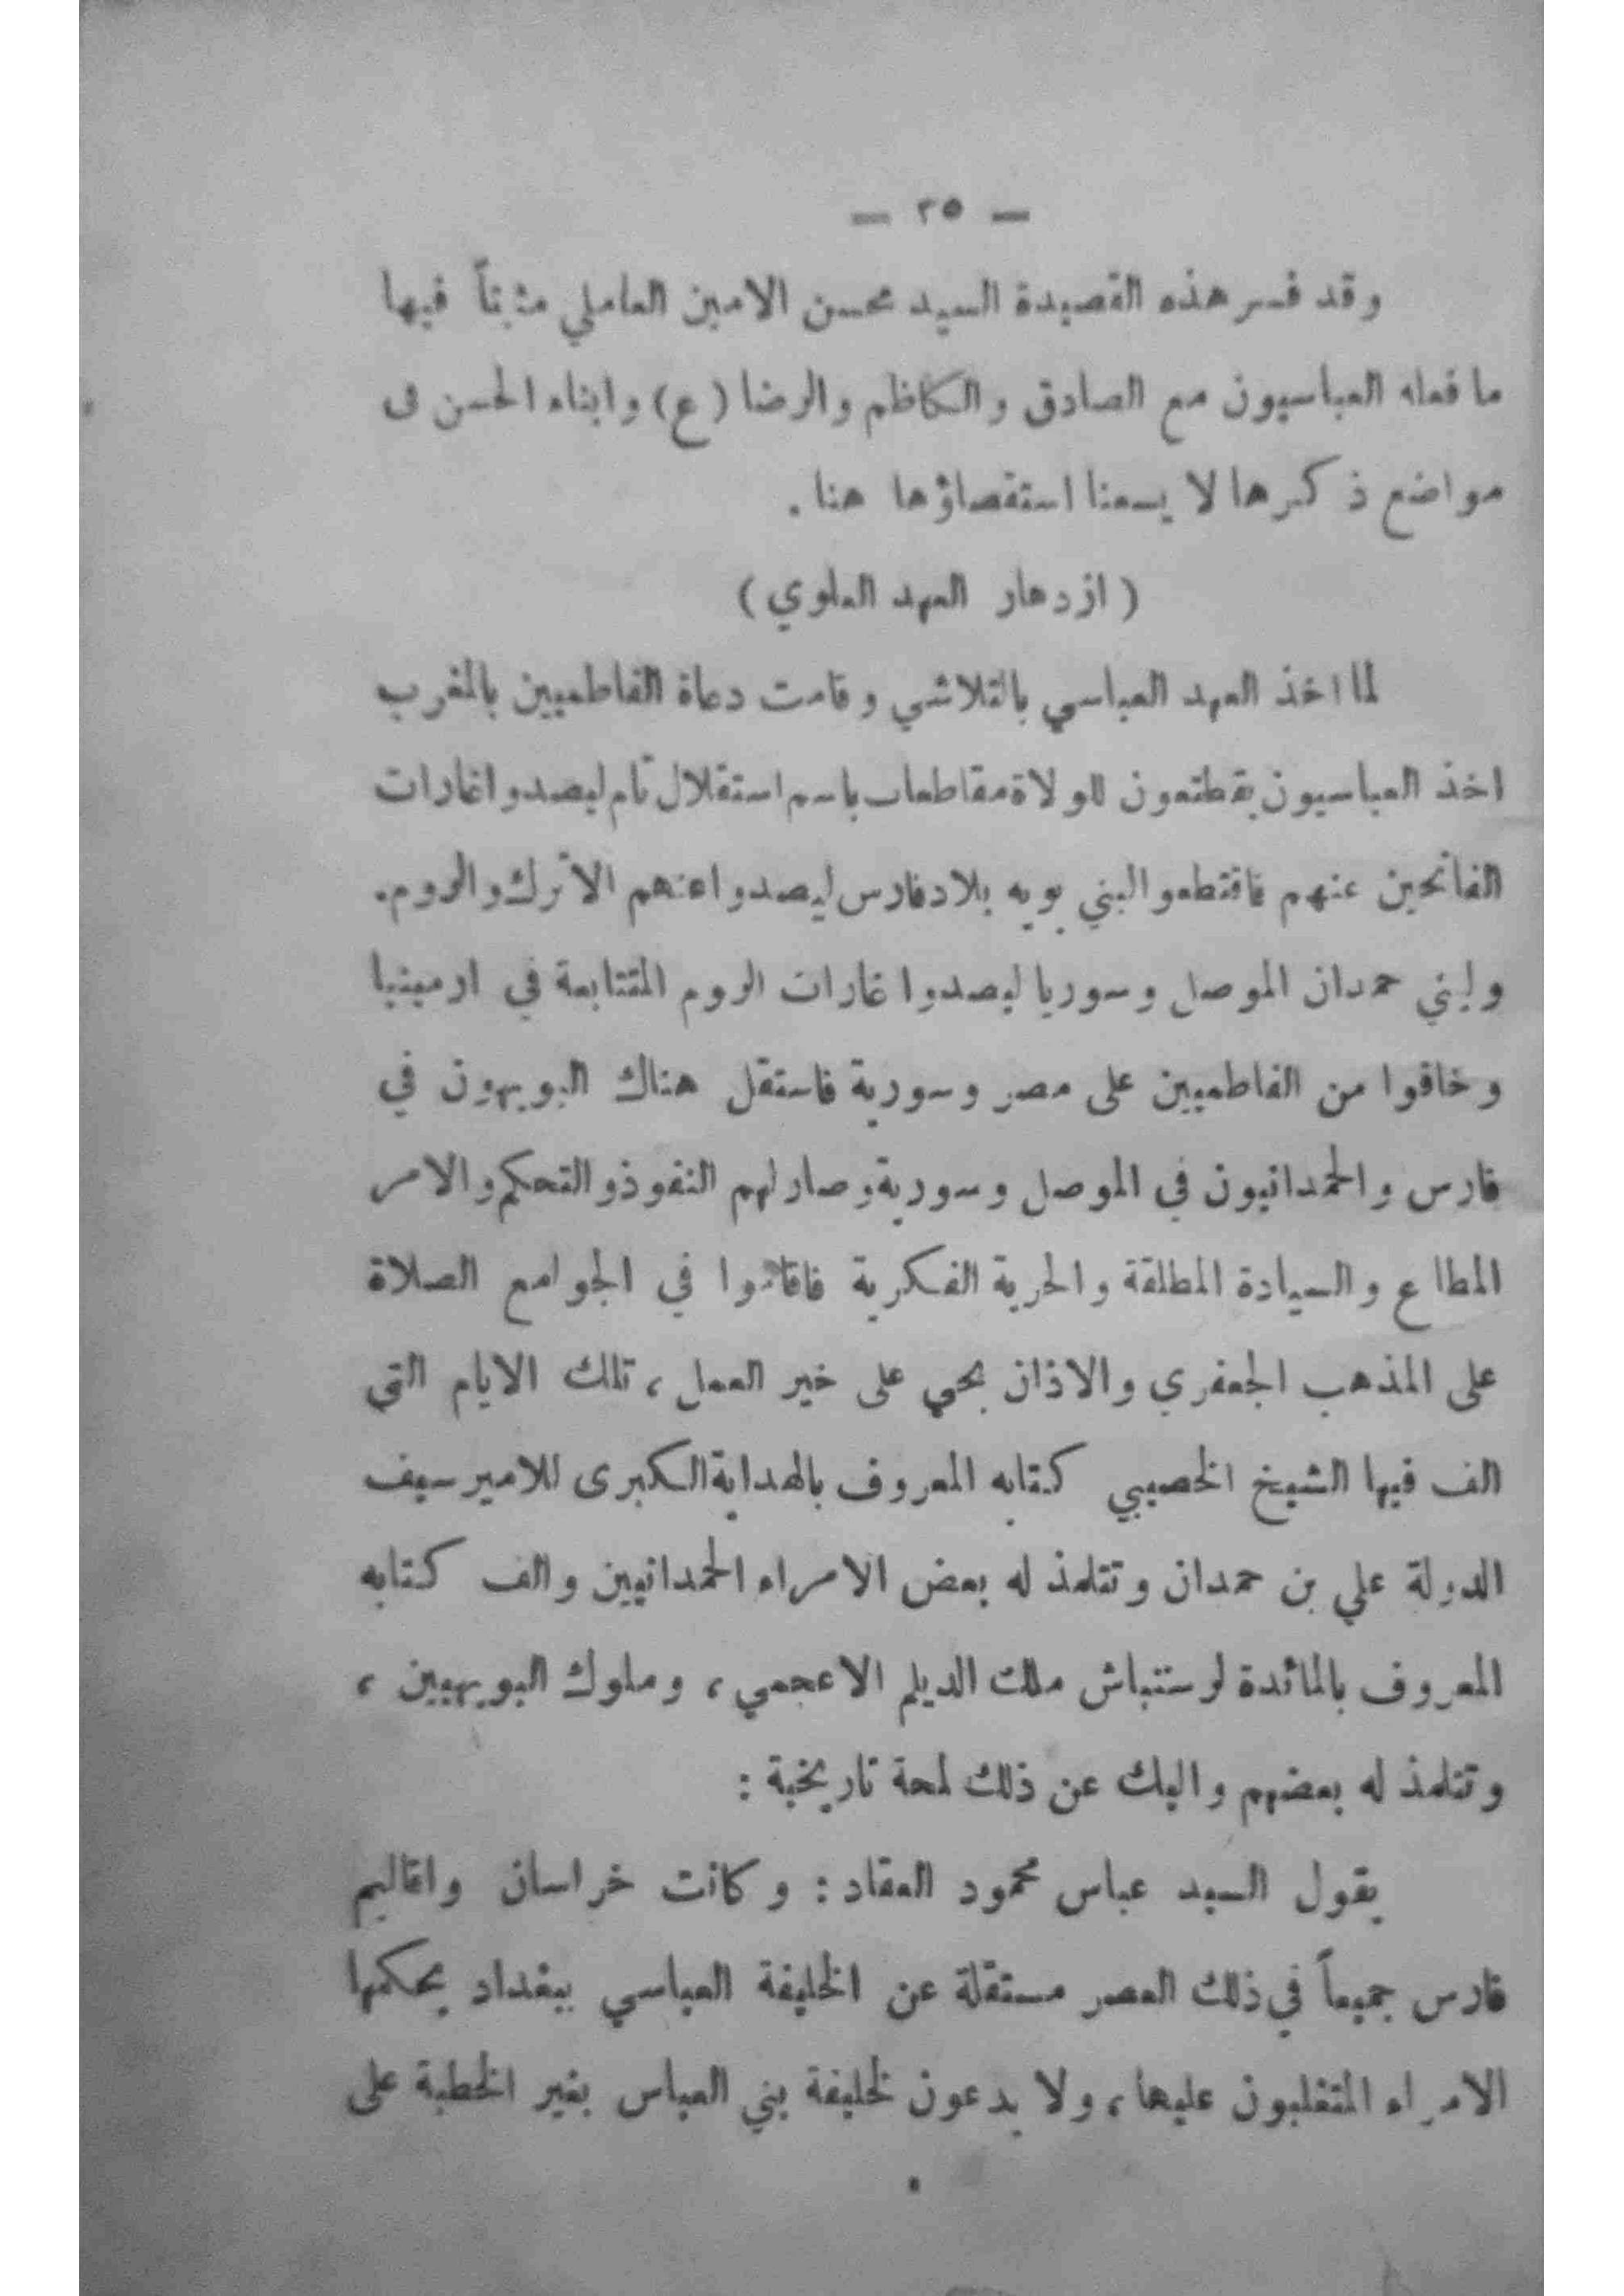 — ٢٥ —
وقد فسر هذه القصيدة السيد محسن الامين العاملي مثبتاً فيها
ما فعله العباسيون مع الصادق والكاظم والرضا (ع) وابناء الحسن في
مواضع ذكرها لا يسعنا استقصاؤها هنا .
( ازدهار العهد العلوي )
لما اخذ العهد العباسي بالتلاشي وقامت دعاة الفاطميين بالمغرب
اخذ العباسيون يقطتعون للولاة مقاطعات باسم استقلال تام ليصدوا غارات
الفاتحين عنهم فاقتطعوا لبني بويه بلاد فارس ليصدوا عنهم الاترك والروم.
ولبني حمدان الموصل وسوريا ليصدوا غارات الروم المتتابعة في ارمينيا
وخافوا من الفاطميين على مصر وسورية فاستقل هناك البويهون في
فارس والحمدانيون في الموصل وسورية وصار لهم النفوذ والتحكم والامر
المطاع والسيادة المطلقة والحرية الفكرية فاقاموا في الجوامع الصلاة
على المذهب الجعفري والاذان بحي على خير العمل ، تلك الايام التي
الف فيها الشيخ الخصيبي كتابه المعروف بالهداية الكبرى للامير سيف
الدولة علي بن حمدان وتتلمذ له بعض الامراء الحمدانيين والف كتابه
المعروف بالمائدة لرستباش ملك الديلم الاعجمي ، وملوك البويهيين ،
وتتلمذ له بعضهم واليك عن ذلك لمحة تاريخية :
يقول السيد عباس محمود العقاد : وكانت خراسان واقاليم
فارس جميعاً في ذلك العصر مستقلة عن الخليفة العباسي ببغداد يحكمها
الامراء المتغلبون عليها ، ولا يدعون لخليفة بني العباس بغير الخطبة على